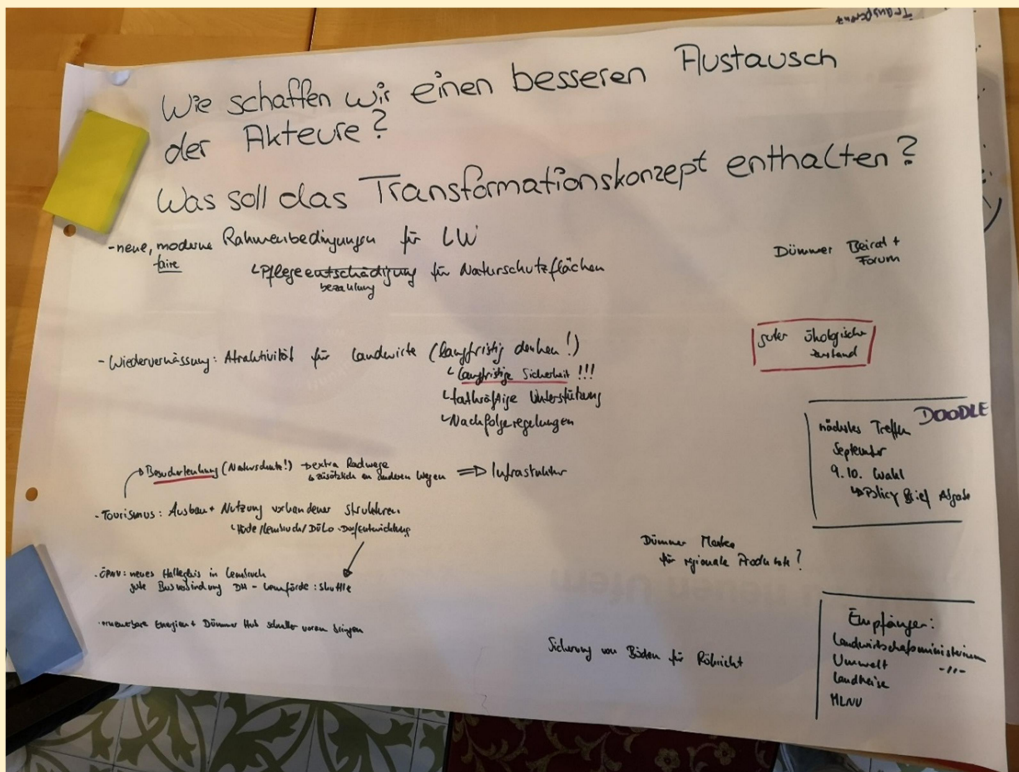 Transparenz
Wie schaffen wir einen besseren Austausch
der Akteure?
Was soll das Transformationskonzept enthalten?
-neue, moderne Rahmenbedingungen für LW
faire
↳Pflegeentschädigung für Naturschutzflächen
bezahlung
Dümmer Beirat +
Forum
guter ökologischer
Zustand
- Wiedervernässung: Atraktivität für Landwirte (langfristig denken!)
↳ langfristige Sicherheit !!!
↳ tatkräftige Unterstützung
↳ Nachfolgeregelungen
DOODLE
nächstes Treffen
September
9.10. Wahl
↳ Policy Brief Abgabe
Besucherlenkung (Naturschutz!) → extra Radwege ⇒ Infrastruktur
↳ zusätzlich zu anderen Wegen
- Tourismus: Ausbau + Nutzung vorhandener Strukturen
↳ Hüde/Lembruch/DüLo Dorfentwicklung
Dümmer Marke
für regionale Produkte?
- ÖPNV: neues Haltegleis in Lembruch
gute Busverbindung DH - Lemförde: Shuttle
- erneuerbare Energien + Dümmer Hub schneller voran bringen
Sicherung von Böden für Röhricht
Empfänger:
Landwirtschaftsministerium
Umwelt -"-
Landkreise
NLNV
neuen Ufern